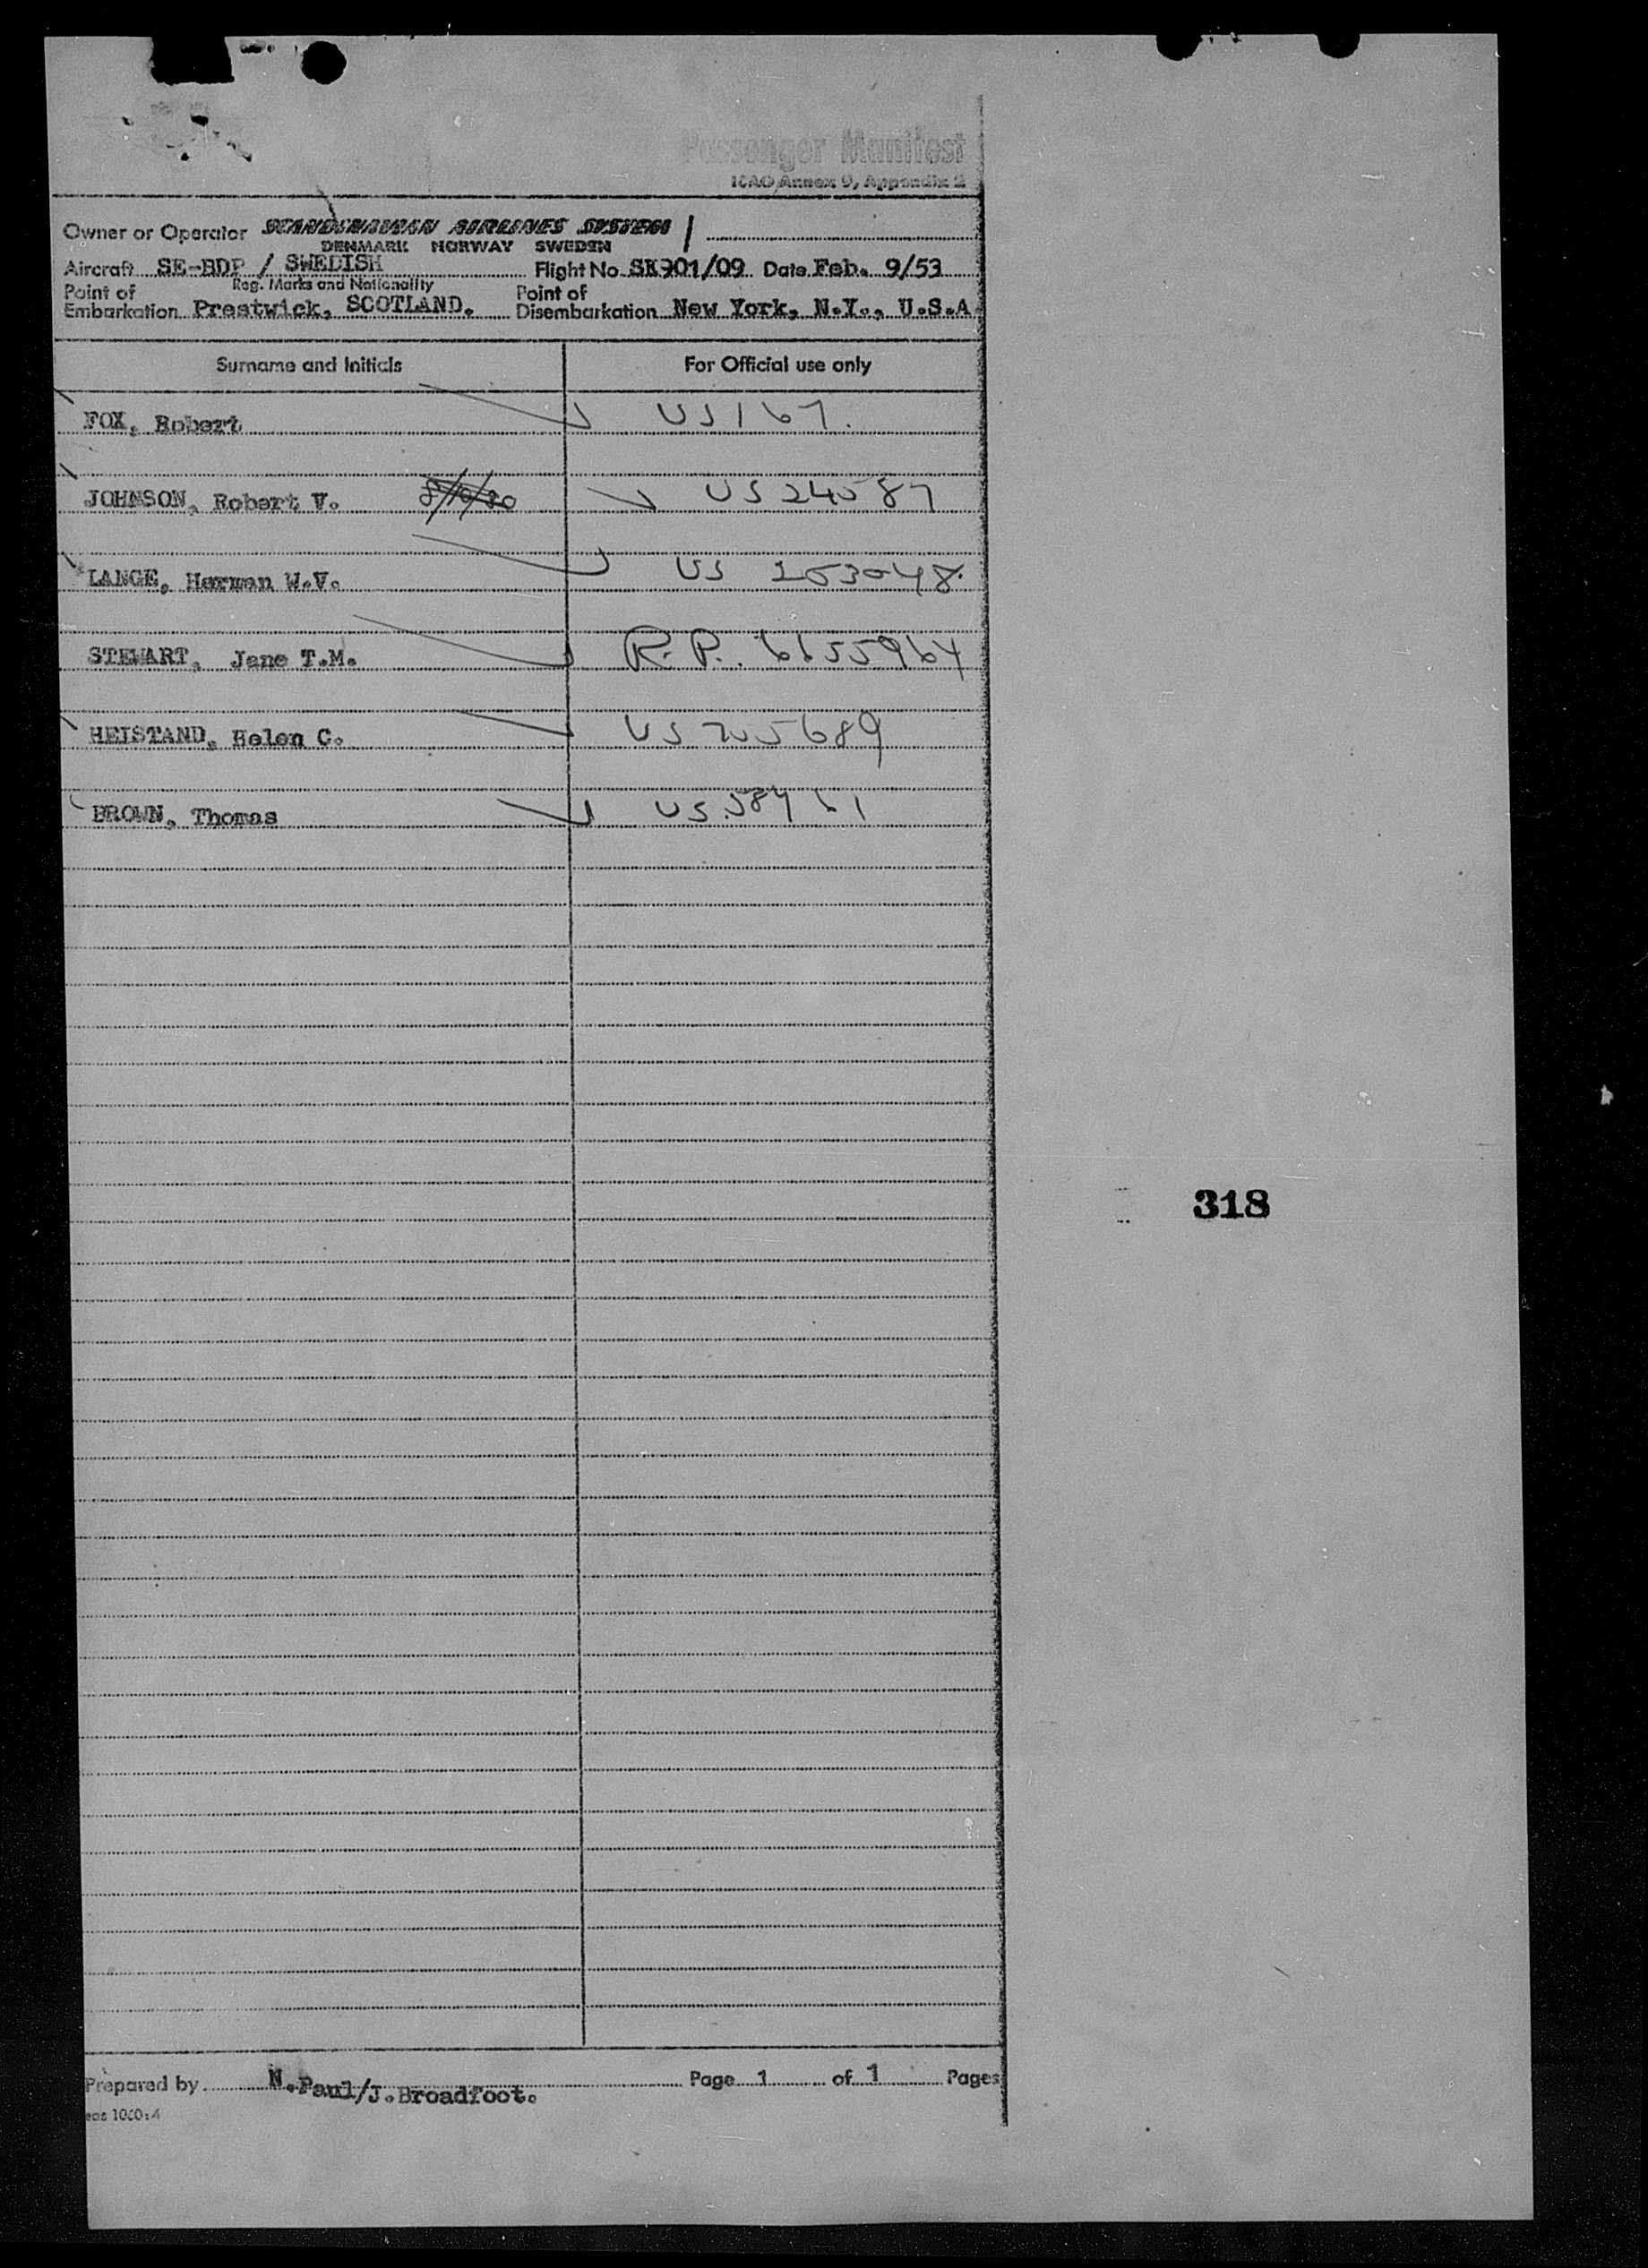 Passenger Manifest
ICAO Annex 9, Appendix 2
Owner or Operator SCANDINAVIAN AIRLINES SYSTEM
DENMARK NORWAY SWEDEN
Aircraft SE-BDP / SWEDISH Flight No. SK901/09 Date Feb. 9/53
Reg. Marks and Nationality
Point of Embarkation Prestwick, SCOTLAND. Point of Disembarkation New York, N.Y., U.S.A.
Surname and Initials For Official use only
FOX, Robert US 167.
JOHNSON, Robert V. US 24587
LANGE, Herman W.V. US 253048.
STEWART, Jane T.M. R.P. 6655964
HEISTAND, Helen C. US 689
BROWN, Thomas US 58461
318
Prepared by N.Paul/J.Broadfoot. Page 1 of 1 Pages